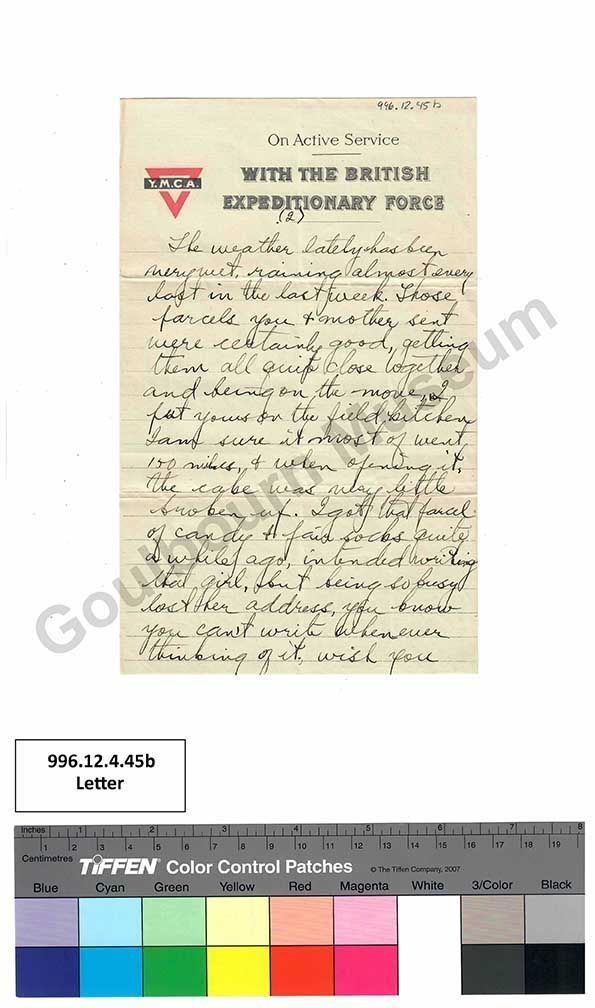 996.12.45b
On Active Service
Y.M.C.A.
WITH THE BRITISH
EXPEDITIONARY FORCE
(2)
The weather lately has been
very wet, raining almost every
last in the last week. Those
parcels you & mother sent
were certainly good, getting
them all quite close together
and being on the move, I
put yours on the field kitchen
I am sure it most of went
100 miles, & when opening it,
the cake was very little
broken up. I got that parcel
of candy & pair socks quite
a while ago, intended writing
that girl, but being so busy
lost her address, you know
you can't write whenever
thinking of it, wish you
Goulbourn Museum
996.12.4.45b
Letter
Inches 1 2 3 4 5 6 7 8
Centimetres 1 2 3 4 5 6 7 8 9 10 11 12 13 14 15 16 17 18 19
TIFFEN Color Control Patches © The Tiffen Company, 2007
Blue Cyan Green Yellow Red Magenta White 3/Color Black